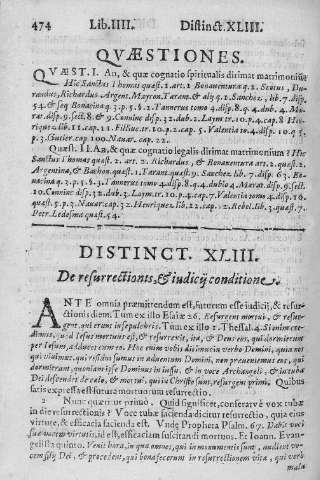 474 Lib. IIII. Distinct. XLIII.
QVÆSTIONES.
QVÆST. I. An, & quæ cognatio spiritualis dirimat matrimoniũ?
Hic Sanctus Thomas quæst. 1. art. 1 Bonauentura q. 2. Scotus, Du-
randus, Richardus Argent. Mayron. Tarant. & alij q. 1. Sanchez, lib. 7 disp.
54. & seq Bonacina q. 3. p. 5. §. 2. Tannerus tomo 4. disp. 8. q. 4. dub. 4.
rat. disp. 9. sect. 8. & 9. Coninc disp. 32. dub. 2. Laym. tr. 10. p. 4. cap. 8
riquez lib. 11. cap. 11. Filliuc. tr. 10. p. 2. cap. 5. Valentia to. 4. disp. 10 q. 5.
p. 3. Gutier. cap. 100. Nauar. cap. 22.
Quæst. II. An, & quæ cognatio legalis dirimat matrimonium? Hic
Sanctus Thomas quæst. 2. art. 2. Richardus, & Bonauentura art. 2. quæst. 2.
Argentina, & Bachon quæst. 1. Tarant. quæst. 1. Sanchez lib. 7. disp. 63. Bo-
nacina q. 3. p. 5. §. 3. Tannerus tomo 4. disp. 8. q. 4. dubio 4. disp. 9. sect.
10. Coninc disp. 32. dub. 3. Laym. tr. 10. p. 4. cap. 7. Valentia tomo 4. disp. 10
quæst. 5. p. 3. Nauar. cap. 22. Henriquez lib. 12. cap. 2. Rebel. lib. 3. quæst. 7.
Petr. Ledesma quæst. 54.
DISTINCT. XLIII.
De resurrectionis, & iudicij conditione.
ANTE omnia præmittendum est, futurum esse iudicij, & resur-
rectionis diem. Tum ex illo Esaiæ 26. Resurgent mortui, & resur-
gent, qui erunt in sepulchris. Tum ex illo 1. Thessal. 4. Si enim cre-
dimus, quod Iesus mortuus est, & resurrexit, ita, & Deus eos, qui dormierunt
per Iesum, Adducet cum eo. Hoc enim vobis dicimus in verbo Domini, quia nos
qui viuimus, qui residui sumus in aduentum Domini, non præueniemus eos, qui
dormierunt, quoniam ipse Dominus in iussu, & in voce Archangeli, & in tuba
Dei descendet de cælo, & mortui, qui in Christo sunt, resurgent primi. Quibus
satis expressa est futura mortuorum resurrectio.
2 Nunc quæritur primò. Quid significet, conserare vox tubæ
in die resurrectionis? Voce tubæ sacienda dicitur resurrectio, quia eius
virtute, & efficacia facienda est. Vnde Propheta Psalm. 67. Dabit voci
suæ vocem virtutis, id est, efficaciam suscitandi mortuos. Et Ioann. Euan-
gelista quinto. Venit hora, in qua omnes, qui in monumentis sunt, audient vo-
cem filij Dei, & procedent, qui bona fecerunt in resurrectionem vitæ, qui verò
mala